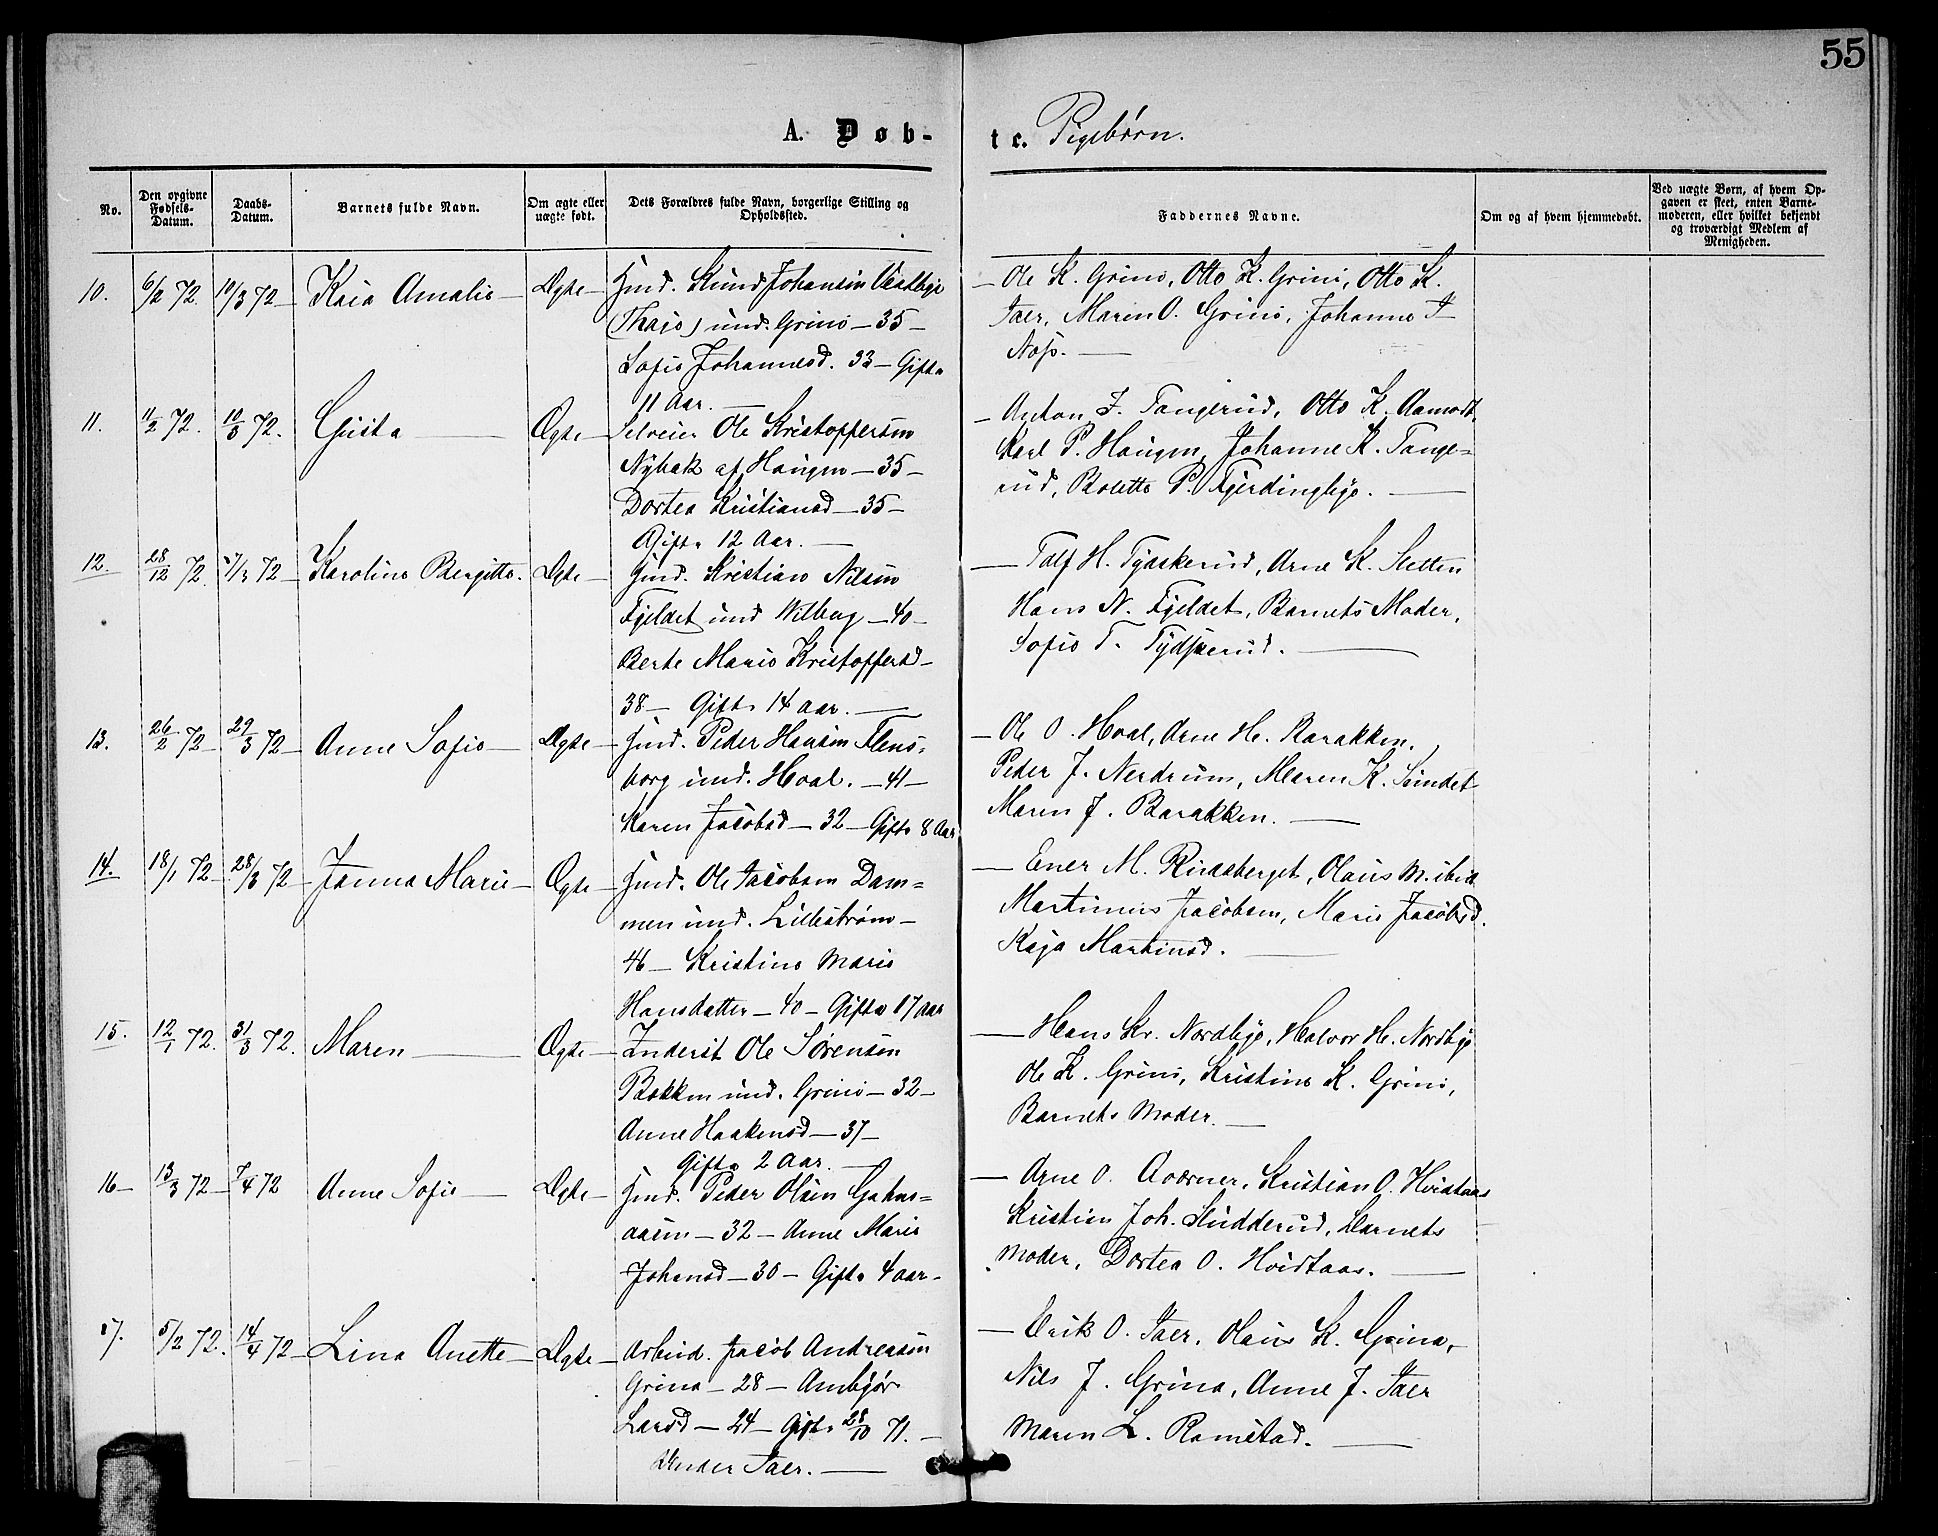 55
A. Døb-
te. Pigebørn.
No.
Den opgivne Fødsels-Datum.
Daabs-Datum.
Barnets fulde Navn.
Om ægte eller uægte født.
Dets Forældres fulde Navn, borgerlige Stilling og Opholdssted.
Faddernes Navne.
Om og af hvem hjemmedøbt.
Ved uægte Born, af hvem Op-
gaven er skeet, enten Barne-
moderen, eller hvilket bekjendt
og troværdigt Medlem af
Menigheden.
10. 6/2 72. 10/3 72 Kaia Amalie Ægte Hmd. Johansen Vestbye
und. Grini 35
Sofie Johannesd. 33 Gifte
11 Aar.
Ole K. Grini, Otto K. Grini, Otto K.
Taer, Maren O. Grini, Johanne
11. 11/2 72. 10/3 72. Gusta Ægte Selveier Ole Kristoffersen
Nybak af Haugen 35
Dortea Kristiansd 35
Gifte 12 Aar.
Anton J. Tangerud, Otto K. Aamodt,
Karl P. Haugen, Johanne K. Tange-
rud, Bolette P. Fjerdingbye.
12. 28/12 72. 17/3 72 Karoline Bergitte. Ægte Hmd. Kristian Nilsen
Fjeldet und Wilberg 40
Berte Marie Kristoffersd
38 Gifte 14 aar.
H. Tydskerud, Arne K. Sletten
Hans N. Fjeldet, Barnets Moder,
Sofie T. Tydskerud.
13. 26/2 72 29/3 72 Anne Sofie Ægte Hmd. Peder Hansen Flens-
borg und. Hoal. 41
Karen Jacobsd 32 Gifte 8 Aar
Ole O. Hoal, Arne H. Barakken.
Peder J. Nerdrum, Maren K. Sundet
Maren J. Barakken.
14. 18/1 72 28/3 72 Janna Marie Ægte Hmd. Ole Jacobsen Dam-
men und. Lillestrøm
46 Kristine Marie
Hansdatter 40 Gifte 17 aar
Ener M. Rindsberget, Olaus M. ibid
Martinus Jacobsen, Marie Jacobsd.
Kaja Martinsd.
15. 12/1 72. 31/3 72. Maren Ægte Inderst Ole Sørensen
Bakken und. Grini 32
Anne Haakensd 37
Gifte 2 Aar.
Hans Kr. Nordbye, Halvor H. Nordbye
Ole K. Grini, Kristine K. Grini,
Barnets Moder.
16 13/3 72 7/4 72 Anne Sofie Ægte Hmd. Peder Olsen
32 Anne Marie
Johansd 30 Gifte 4 aar
Arne O. Kristian O. Hvidtaas
Kristian Joh. Sludderud, Barnets
Moder, Dortea O. Hvidtaas.
17. 5/2 72. 14/4 72 Lina Anette Ægte Arbeid. Jacob Andreasen
Grina 28 Anbjør
Larsd 24 Gifte 28/10 71.
Under Taer.
Erik O. Taer, Olaus K. Grina,
Nils J. Grina, Anne J. Taer
Maren L. Ramstad.